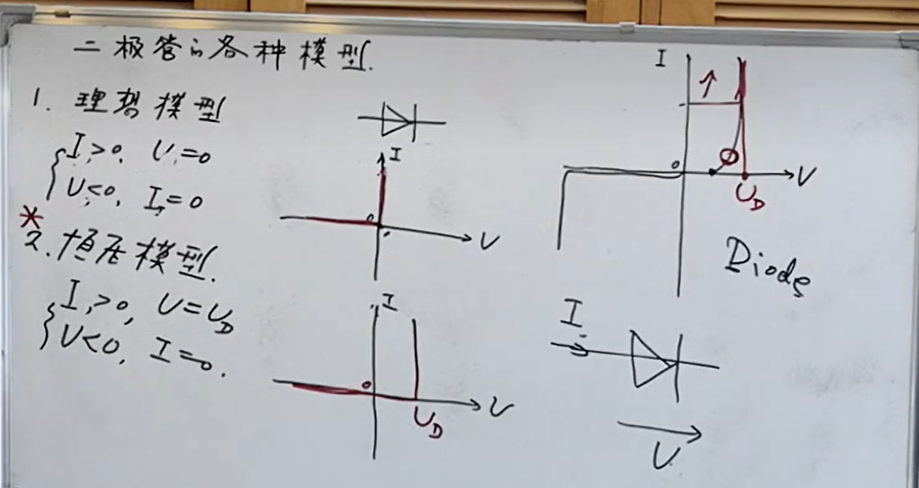 二极管的各种模型.
1. 理想模型
{ I>0, U=0
U<0, I=0
* 2. 恒压模型.
{ I>0, U=U_D
U<0, I=0.
I
0
U
I
0
U_D
U
I
0
U_D
U
Diode
I
U